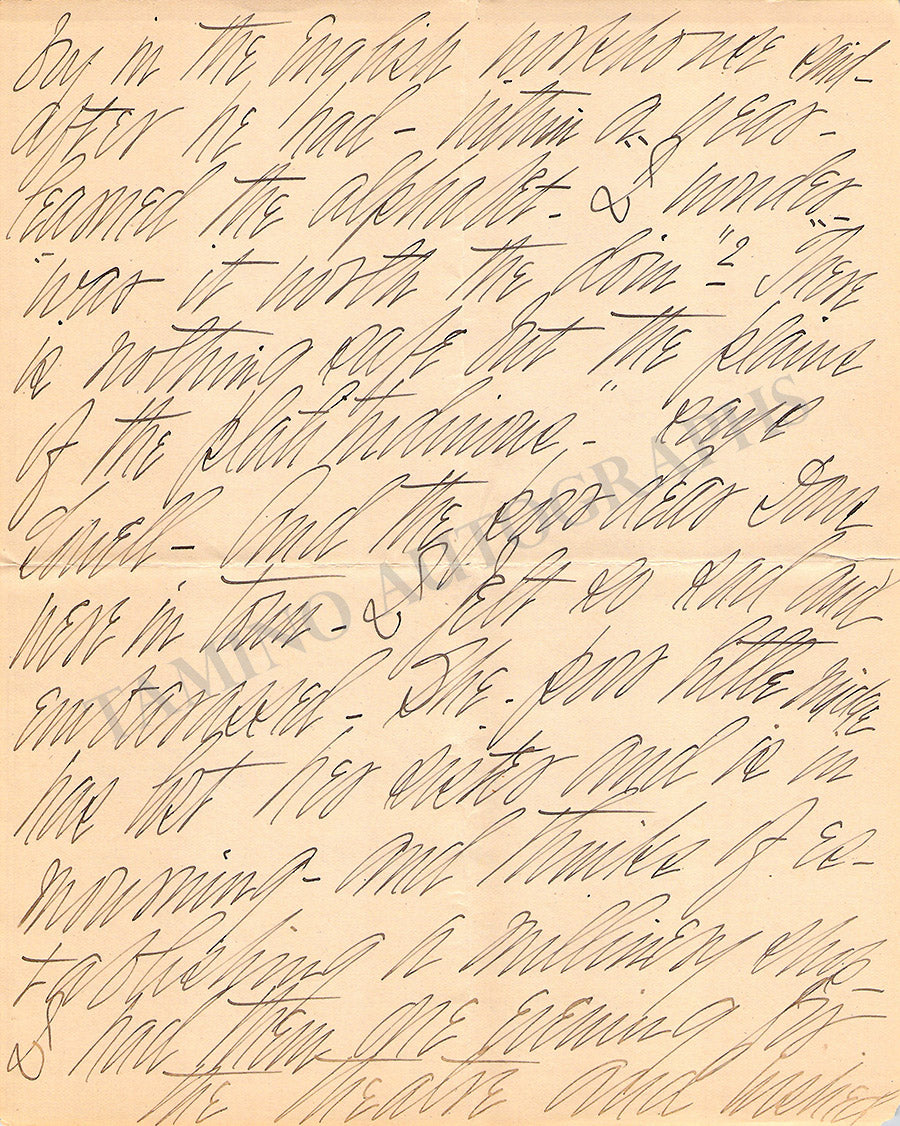 boy in the English workhouse said -
after he had - within a year -
learned the alphabet - I wonder
"was it worth the doin"? "There
is nothing safe but the plains
of the platitudinous," - says
Lowell - And the poor dear
were in town - I felt so sad and
embarrassed - She - poor little
has lost her sister and is in
mourning - and thinks of es-
tablishing a millinery shop -
I had them one evening for
the theatre and wished
TAMINO AUTOGRAPHS